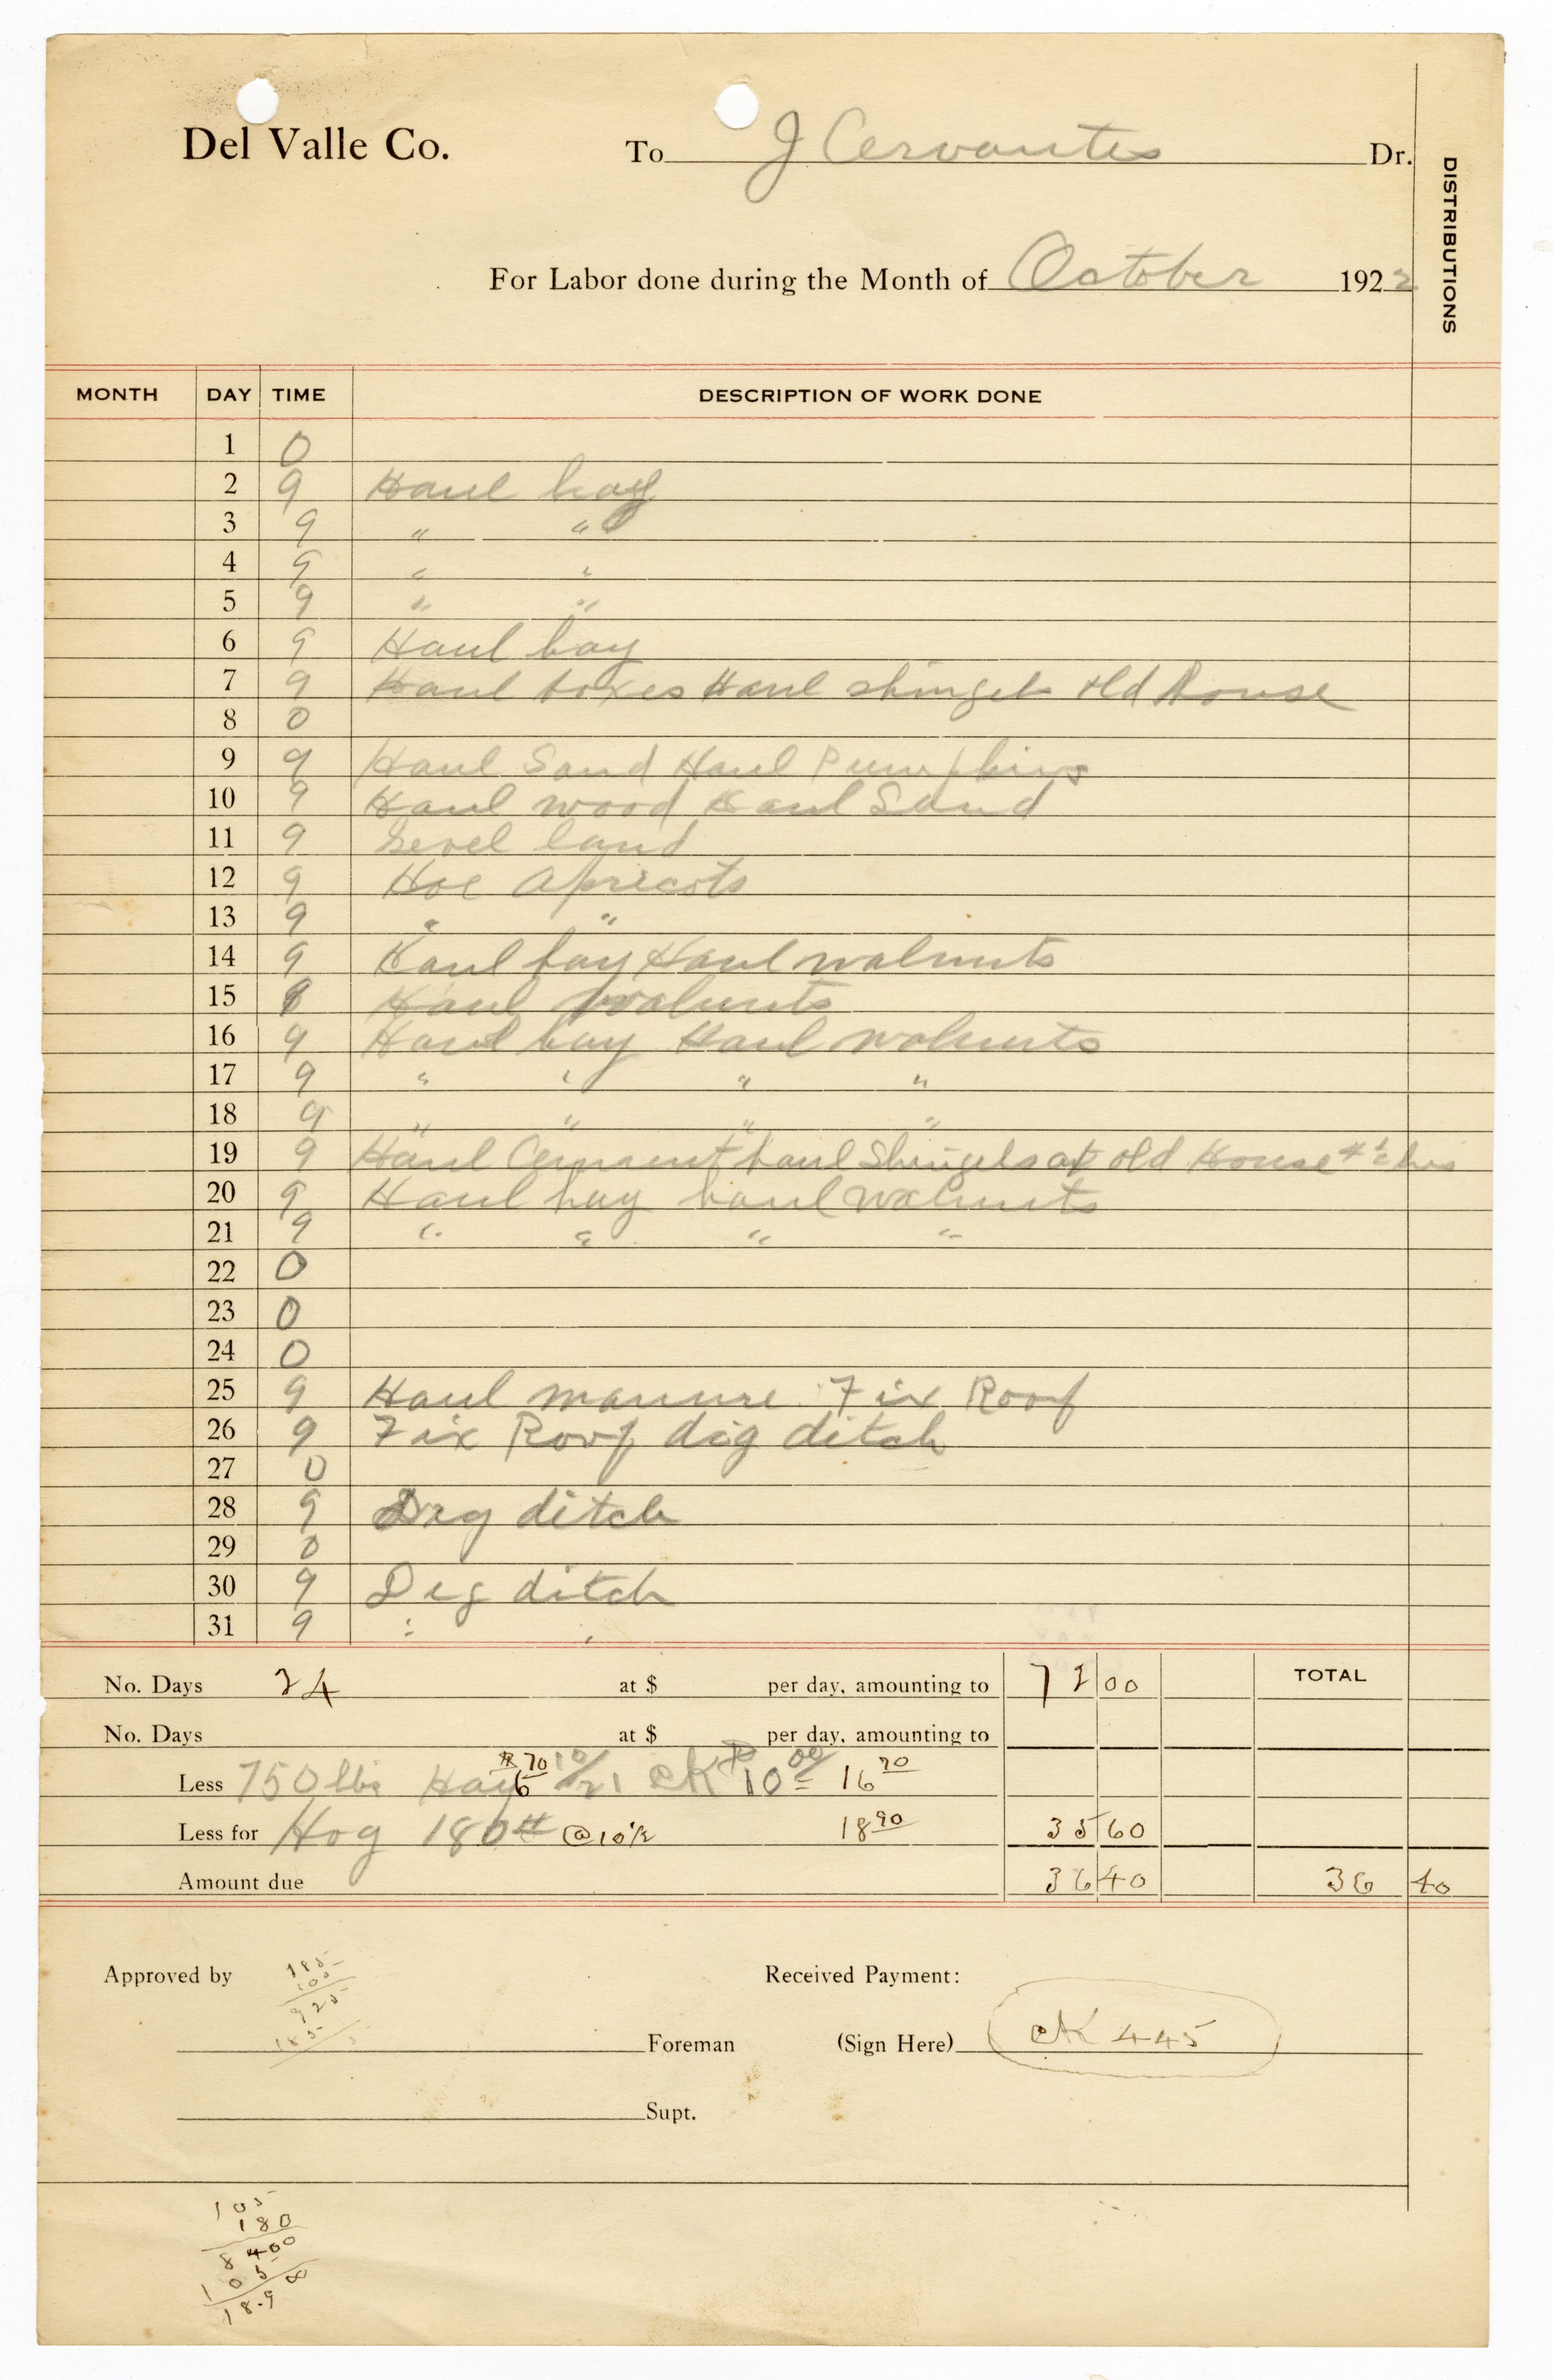 Del Valle Co. To J Cervantes Dr.
DISTRIBUTIONS
For Labor done during the Month of October 1922
MONTH DAY TIME DESCRIPTION OF WORK DONE
1 0
2 9 Haul hay
3 9 " "
4 9 " "
5 9 " "
6 9 Haul hay
7 9 Haul boxes Haul shingels old house
8 0
9 9 Haul Sand Haul Pumpkins
10 9 Haul wood Haul Sand
11 9 Level land
12 9 Hoe Apricots
13 9 " "
14 9 Haul hay Haul walnuts
15 Haul walnuts
16 9 Haul hay Haul walnuts
17 9 " " " "
18 9 " " " "
19 9 Haul Cement haul Shingels at old House
20 9 Haul hay haul walnuts
21 9 " " " "
22 0
23 0
24 0
25 9 Haul manure Fix Roof
26 9 Fix Roof dig ditch
27 0
28 9 Dig ditch
29 0
30 9 Dig ditch
31 9 " "
No. Days 24 at $ per day, amounting to 72 00 TOTAL
No. Days at $ per day, amounting to
Less 750 lbs Hay 6 70 10/21 CK 10 00 16 70
Less for Hog 180# @ 10½ 18 90 35 60
Amount due 36 40 36 40
Approved by Received Payment:
Foreman (Sign Here) CK 445
Supt.
105
180
8400
105
18.90